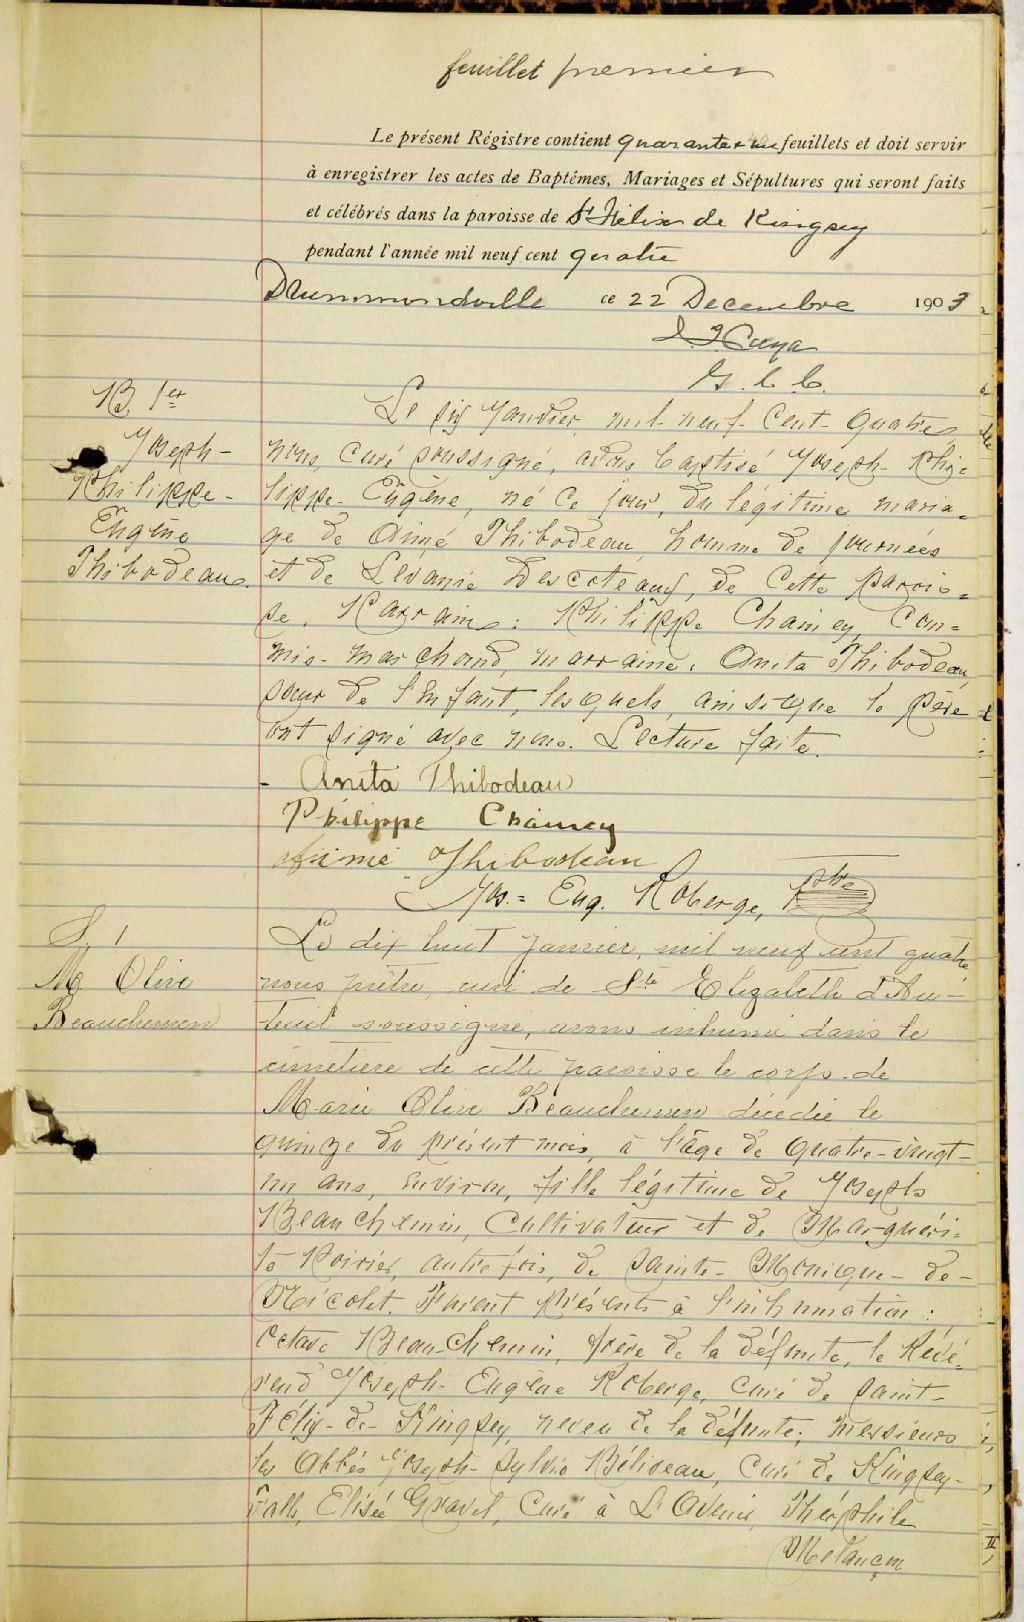 feuillet premier
Le présent Régistre contient quarante & un feuillets et doit servir
à enregistrer les actes de Baptêmes, Mariages et Sépultures qui seront faits
et célébrés dans la paroisse de St Félix de Kingsey
pendant l'année mil neuf cent quatre
Drummondville ce 22 Decembre 1903
B. 1er
Joseph-
Philippe-
Eugène
Thibodeau.
Le six Janvier mil neuf cent quatre,
nous, curé soussigné, avons baptisé Joseph-Phi-
lippe-Eugène, né ce jour, du légitime maria-
ge de Aimé Thibodeau, homme de journées
et de Levanie Descoteaux, de cette parois-
se. Parrain: Philippe Chainey, com-
mis-marchand, marraine: Anita Thibodeau,
sœur de l'enfant, lesquels, ainsi que le père
ont signé avec nous. Lecture faite.
- Anita Thibodeau
Philippe Chainey
Aimé Thibodeau
Jos.= Eug. Roberge, Ptre
S. 1
M. Olive
Beauchemin
Le dix huit janvier, mil neuf cent quatre
nous prêtre, curé de Ste Elizabeth d'Au-
teuil soussigné, avons inhumé dans le
cimetière de cette paroisse le corps de
Marie Olive Beauchemin décédée le
quinze du présent mois, à l'âge de quatre-vingt-
un ans, environ, fille légitime de Joseph
Beauchemin, Cultivateur et de Marguéri-
te Poirier, autrefois, de Sainte-Monique-de-
Nicolet. Furent présents à l'inhumation:
Octave Beauchemin, frère de la défunte, le Révé-
rend Joseph-Eugène Roberge, curé de Saint-
Félix-de-Kingsey, neveu de la défunte; messieurs
les Abbés Joseph-Sylvio Béliveau, curé de Kingsey-
Falls, Elisée Gravel, Curé à L'Avenir, Théophile
Melançon